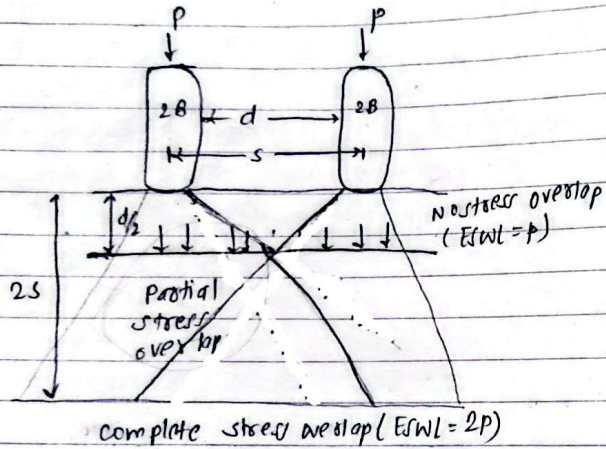 P P
2B d 2B
S
d/2
No stress overlap
(ESWL=P)
2S
Partial
stress
overlap
complete stress overlap (ESWL=2P)